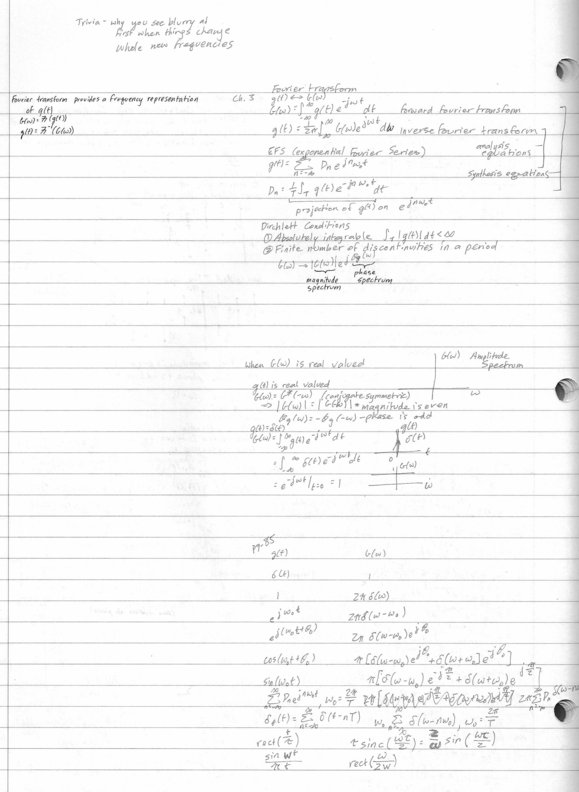 Trivia - why you see blurry at
first when things change
whole new frequencies
Fourier transform provides a frequency representation
of g(t)
G(ω) = F(g(t))
g(t) = F⁻¹(G(ω))
Ch. 3
Fourier transform
g(t) ↔ G(ω)
G(ω) = ∫_{-∞}^{∞} g(t) e^{-jωt} dt forward fourier transform
g(t) = 1/2π ∫_{-∞}^{∞} G(ω) e^{jωt} dω inverse fourier transform
EFS (exponential Fourier Series)
analysis
equations
g(t) = Σ_{n=-∞}^{∞} D_n e^{jnω₀t}
Synthesis equations
D_n = 1/T ∫_T g(t) e^{-jnω₀t} dt
projection of g(t) on e^{jnω₀t}
Dirchlett Conditions
① Absolutely integrable ∫_T |g(t)| dt < ∞
② Finite number of discontinuities in a period
G(ω) → |G(ω)| e^{jθ_g(ω)}
magnitude
spectrum
phase
spectrum
When G(ω) is real valued
G(ω) Amplitude
Spectrum
ω
g(t) is real valued
G(ω) = G*(-ω) (conjugate symmetric)
⇒ |G(ω)| = |G(ω)| * magnitude is even
θ_g(ω) = -θ_g(-ω) - phase is odd
g(t) = δ(t)
G(ω) = ∫_{-∞}^{∞} g(t) e^{-jωt} dt
= ∫_{-∞}^{∞} δ(t) e^{-jωt} dt
= e^{-jωt}|_{t=0} = 1
g(t)
δ(t)
t
0
G(ω)
ω
pg. 85
g(t) G(ω)
δ(t) 1
1 2πδ(ω)
e^{jω₀t} 2πδ(ω-ω₀)
e^{j(ω₀t+θ₀)} 2π δ(ω-ω₀) e^{jθ₀}
cos(ω₀t+θ₀) π[δ(ω-ω₀) e^{jθ₀} + δ(ω+ω₀) e^{-jθ₀}]
sin(ω₀t) π[δ(ω-ω₀) e^{-jπ/2} + δ(ω+ω₀) e^{jπ/2}]
Σ_{n=-∞}^{∞} D_n e^{jnω₀t}, ω₀ = 2π/T 2π Σ_{n=-∞}^{∞} D_n δ(ω-nω₀)
δ_P(t) = Σ_{n=-∞}^{∞} δ(t-nT) ω₀ Σ_{n=-∞}^{∞} δ(ω-nω₀), ω₀ = 2π/T
rect(t/τ) τ sinc(ωτ/2) = 2/ω sin(ωτ/2)
sin Wt/πt rect(ω/2W)